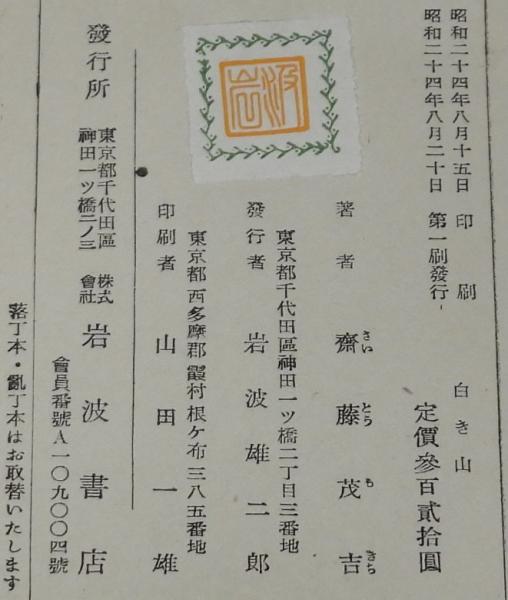 昭和二十四年八月十五日 印刷
昭和二十四年八月二十日 第一刷發行
白き山
定價參百貳拾圓
著者 齋藤茂吉
さい とう も きち
東京都千代田區神田一ツ橋二丁目三番地
發行者 岩波雄二郎
東京都西多摩郡霞村根ケ布三八五番地
印刷者 山田一雄
岩波
發行所 東京都千代田區神田一ツ橋二ノ三 株式會社 岩波書店
會員番號A一〇九〇〇四號
落丁本・亂丁本はお取替いたします